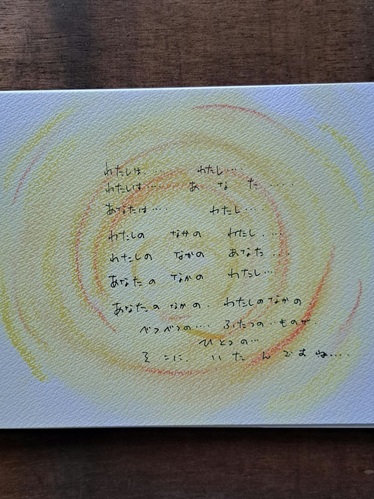 わたしは、 わたし...
わたしは..... あ な た ....
あなたは... わたし...
わたしの なかの わたし...
わたしの なかの あなた...
あなたの なかの わたし...
あなたのなかの、わたしのなかの
べつべつの.... ふたつの..ものが、
ひとつの...
そこに、 い た ん で す ね....